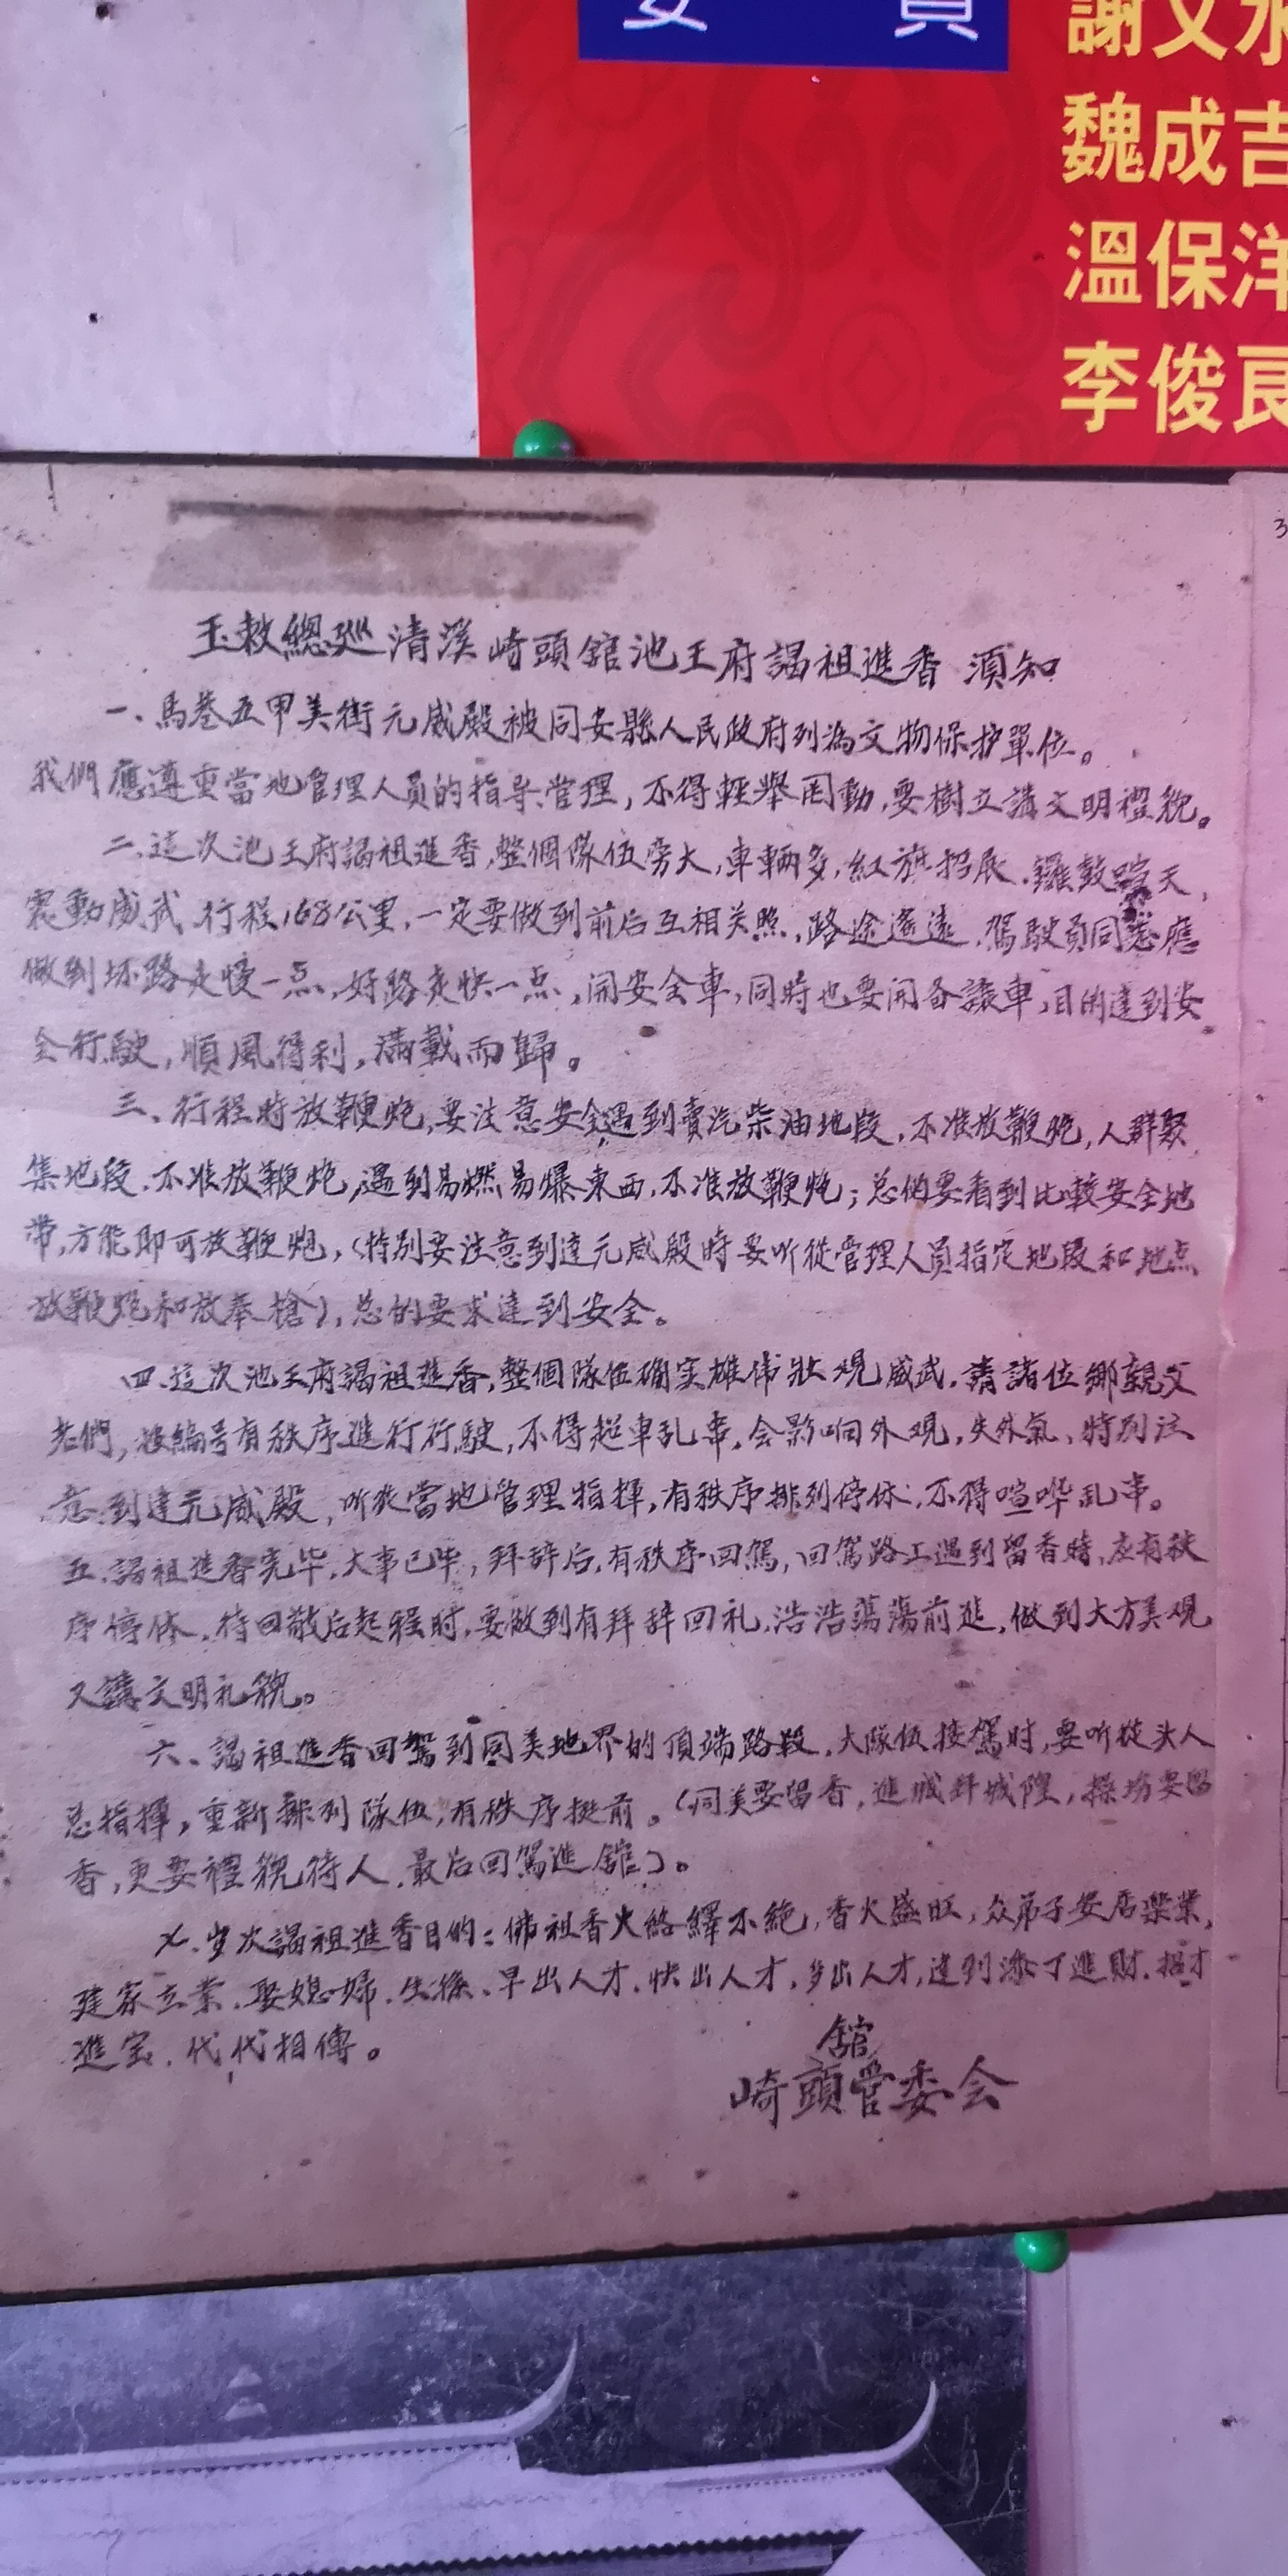 委 員
謝文水
魏成吉
溫保洋
李俊良
玉敕總巡清溪崎頭館池王府謁祖進香 須知
一、馬巷五甲美街元威殿被同安縣人民政府列為文物保护單位。
我們應遵重當地管理人員的指导管理,不得輕舉罔動,要樹立講文明禮貌。
二、這次池王府謁祖進香,整個隊伍旁大,車輛多,紅旗招展、鑼鼓喧天、
震動威武、行程168公里,一定要做到前后互相关照,路途遙遠,駕駛員同志應
做到坏路走慢一点,好路走快一点,開安全車,同時也要開各讓車,目的達到安
全行駛,順風得利,滿載而歸。
三、行程時放鞭炮,要注意安全遇到賣汽柴油地段,不准放鞭炮,人群聚
集地段,不准放鞭炮,遇到易燃易爆東西,不准放鞭炮;总的要看到比較安全地
帶,方能即可放鞭炮,(特别要注意到達元威殿時要听從管理人員指定地段和地点
放鞭炮和放奉槍),总的要求達到安全。
四、這次池王府謁祖進香,整個隊伍确实雄伟壯观威武,請諸位鄉親父
老們,按編号有秩序進行行駛,不得超車乱串,会影响外观,失外氣、特别注
意到達元威殿,听從當地管理指揮,有秩序排列停休,不得喧哗乱串。
五、謁祖進香完毕,大事已毕,拜辞后,有秩序回駕,回駕路上遇到留香時,应有秩
序停休,待回敬后起程时,要做到有拜辞回礼,浩浩蕩蕩前進,做到大方美观
又講文明礼貌。
六、謁祖進香回駕到同美地界的頂端路段,大隊伍接駕时,要听從头人
总指揮,重新排列隊伍,有秩序挺前。(同美要留香,進城拜城隍,操场要留
香,更要禮貌待人,最后回駕進館)。
七、岁次謁祖進香目的:佛祖香火絡繹不絕,香火盛旺,众弟子安居樂業,
建家立業、娶媳婦、生孫、早出人才、快出人才,多出人才,達到添丁進財、招才
進宝、代代相傳。
館
崎頭管委会
3